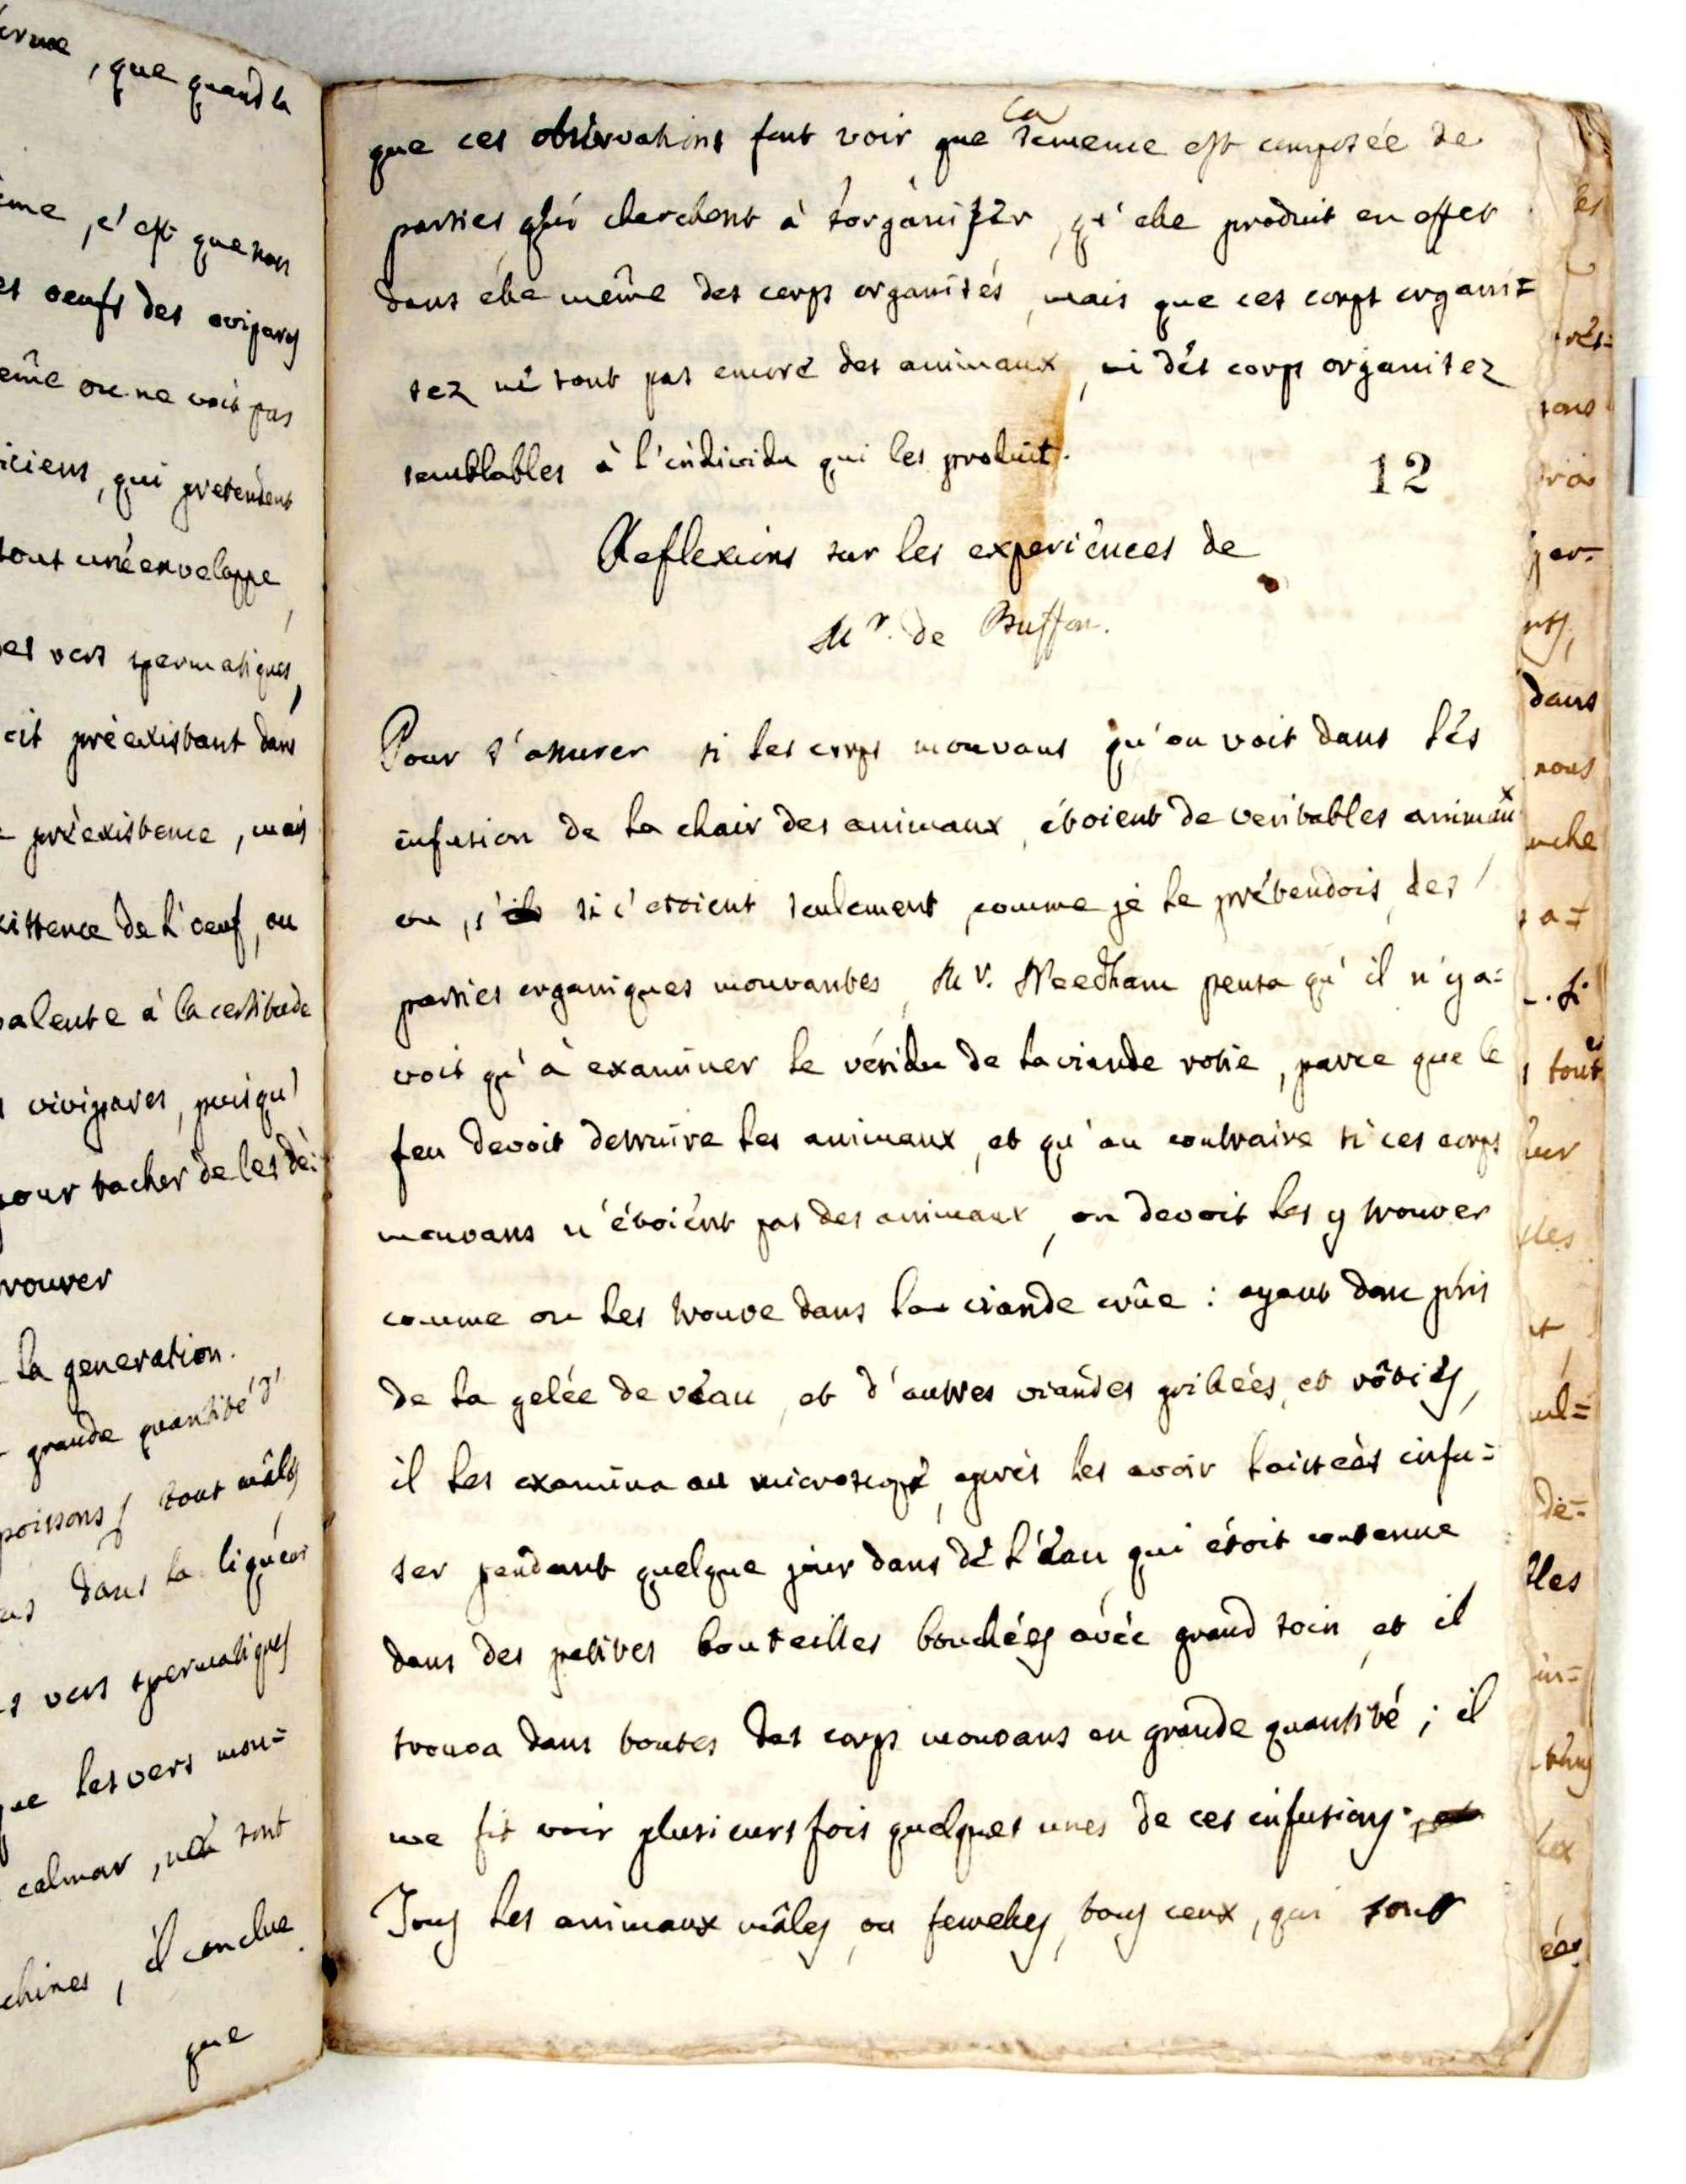 erme, que quand la
ême, c'est que non
es oeufs des ovipares
ême on ne voit pas
iciens, qui pretendent
sont une enveloppe
es vers spermatiques,
oit préexistant dans
préexistence, mais
xistence de l'oeuf, ou
valente à la certitude
vivipares, puisqu'
pour tacher de les dé=
rouver
la generation.
grande quantité d'
poissons sont mâles
dans la liqueur
s vers spermatiques
que les vers mou=
calmar, ne sont
chines, il conclue
que
que ces observations font voir que la semence est composée de
parties qui cherchent à s'organizer, qu'elle produit en effet
dans elle même des corps organisés, mais que ces corps organi=
sez ne sont pas encore des animaux, ni des corps organisez
semblables à l'individu qui les produit.
12
Reflexions sur les experiences de
Mr. de Buffon.
Pour s'assurer si les corps mouvans qu'on voit dans les
infusion de la chair des animaux, étoient de veritables animaux
ou, s'ils si c'etoient seulement, comme je le prétendois, des
parties organiques mouvantes, Mr. Needham pensa qu'il n'y a=
voit qu'à examiner le résidu de la viande rotie, parce que le
feu devoit detruire les animaux, et qu'au contraire si ces corps
mouvans n'étoient pas des animaux, on devoit les y trouver
comme on les trouve dans la viande crûe : ayant donc pris
de la gelée de veau, et d'autres viandes grillées, et rôties,
il les examina au microscope, après les avoir laissées infu=
ser pendant quelque jour dans de l'eau qui étoit contenue
dans des petites bouteilles bouchées avec grand soin, et il
trouva dans toutes des corps mouvans en grande quantité ; il
me fit voir plusieurs fois quelques unes de ces infusions.
Tous les animaux mâles, ou femelles, tous ceux, qui sont
dans
nous